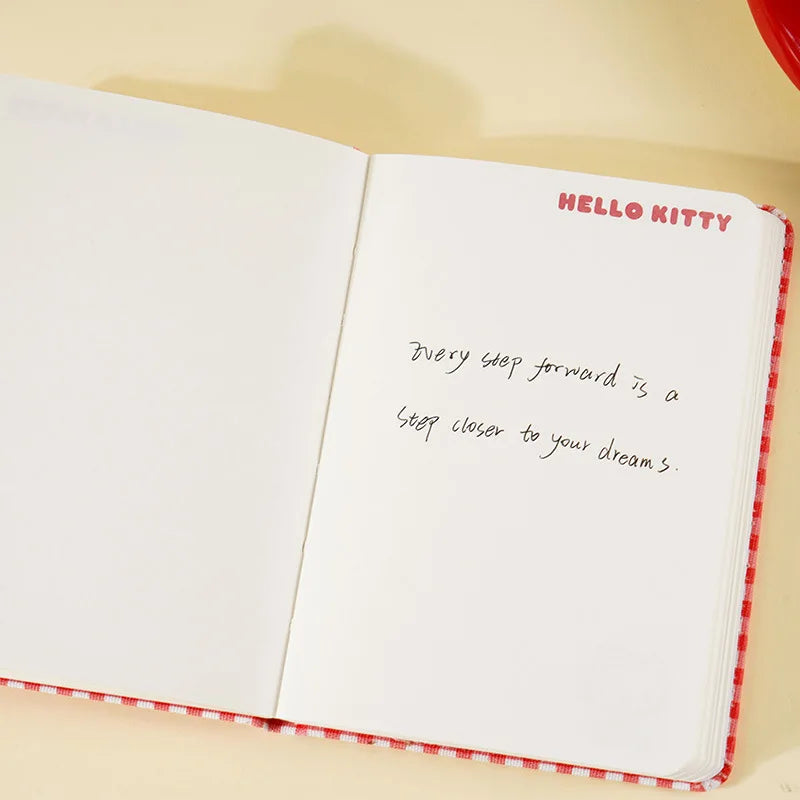 HELLO KITTY
Every step forward is a
step closer to your dreams.